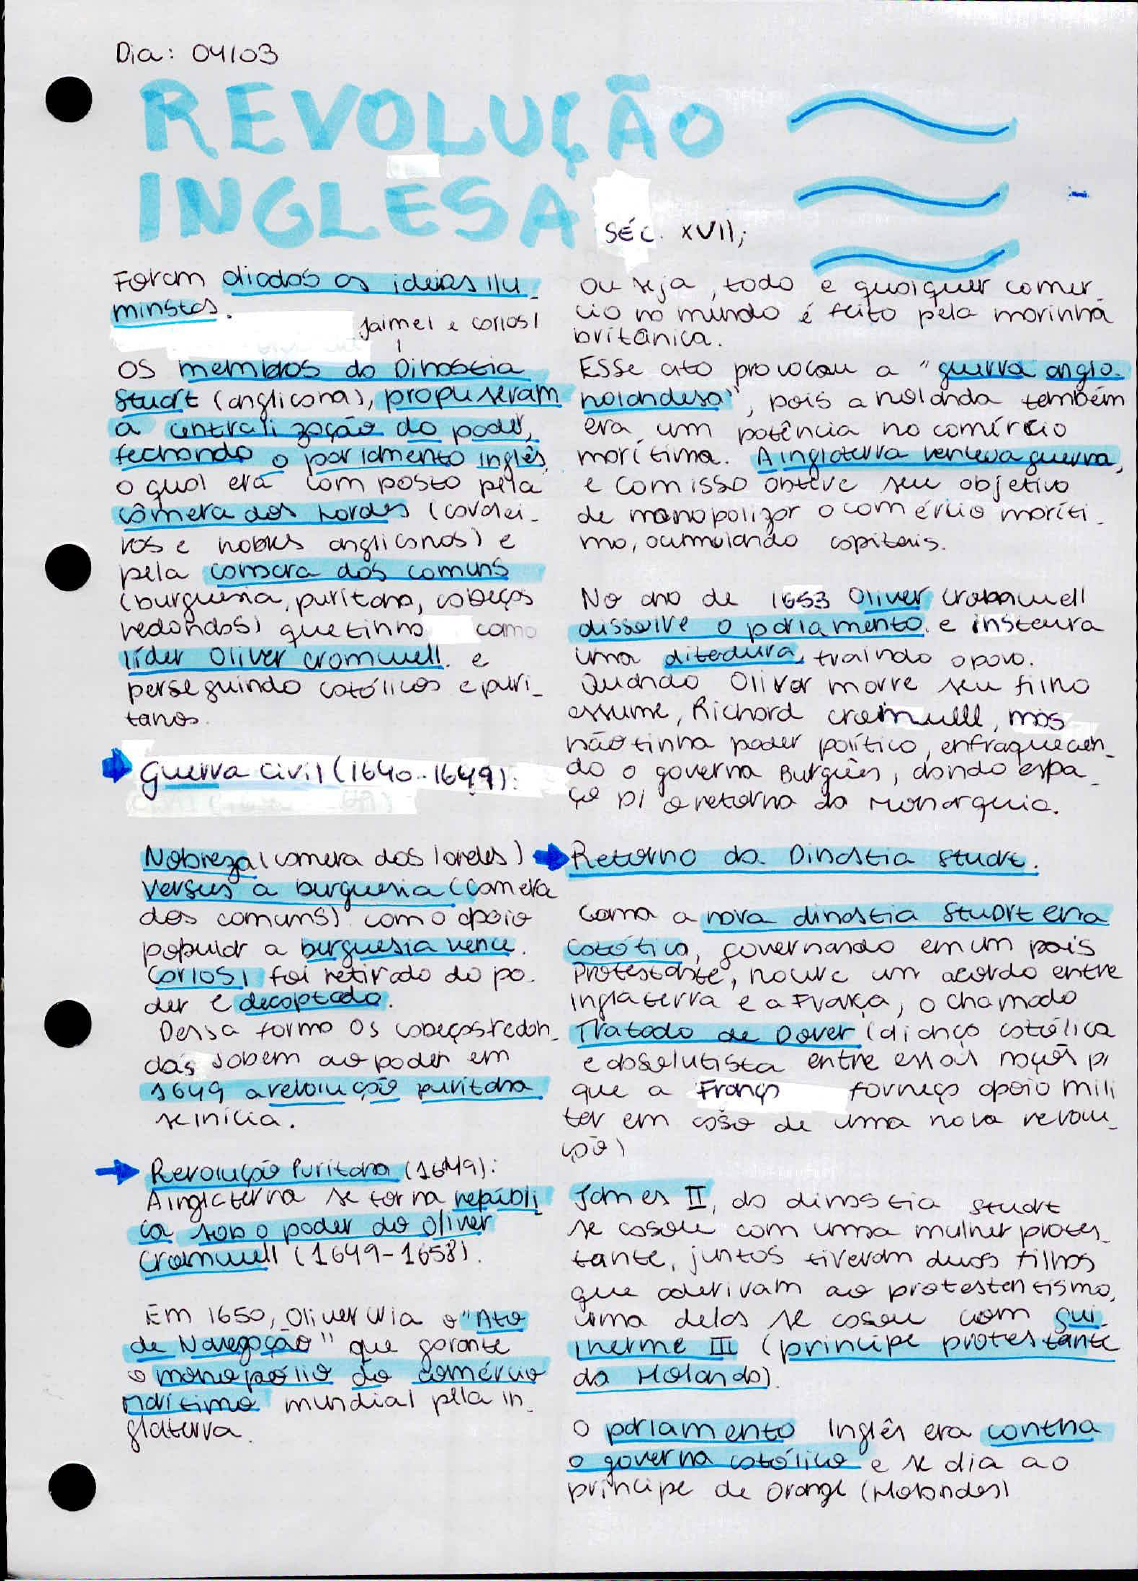 Dia: 04/03
REVOLUÇÃO
INGLESA
SÉC. XVII;
Foram aliadas as ideias ilu_
ministas.
Jaime I e Carlos I
Os membros da Dinastia
Stuart (anglicana), propuseram
a centralização do poder,
fechando o parlamento inglês,
o qual era composto pela
câmera dos Lordes (cavalei_
ros e nobres anglicanos) e
pela camara dos comuns
(burguesia, puritana, cabeças
redondas) que tinha como
líder Oliver cromwell. e
perseguindo católicos e puri_
tanos.
Guerra Civil (1640-1649):
Nobreza (camera dos lordes)
versus a burguesia (camera
dos comuns) com o apoio
popular a burguesia vence.
Carlos I foi retirado do po_
der e decaptado.
Dessa forma os cabeças redon_
das sobem ao poder em
1649 a revolução puritana
se inicia.
Revolução Puritana (1649):
A inglaterra se torna repúbli_
ca sob o poder do Oliver
Cromwell (1649-1658).
Em 1650, Oliver cria o "Ato
de Navegação" que garante
o monopólio do comércio
marítimo mundial pela in_
glaterra.
ou seja, todo e qualquer comer_
cio no mundo é feito pela marinha
britânica.
Esse ato provocou a "guerra anglo_
holandesa", pois a holanda também
era um potência no comércio
marítima. A inglaterra vence a guerra,
e com isso obteve seu objetivo
de monopolizar o comércio maríti_
mo, acumulando capitais.
No ano de 1653 Oliver Cromwell
dissolve o parlamento e instaura
uma ditadura, traindo o povo.
Quando Oliver morre seu filho
assume, Richard cromwell, mas
não tinha poder político, enfraquecen_
do o governo Burguês, dando espa_
ço p/ o retorno da Monarquia.
Retorno da Dinastia Stuart.
Como a nova dinastia Stuart era
católica, governando em um país
Protestante, houve um acordo entre
Inglaterra e a França, o chamado
Tratado de Dover (aliança católica
e absolutista entre essas nações p/
que a França forneça apoio mili
tar em caso de uma nova revolu_
ção)
James II, da dinastia stuart
se casou com uma mulher protes_
tante, juntos tiveram duas filhas
que aderiram ao protestantismo,
uma delas se casou com Gui_
lherme III (príncipe protestante
da Holanda).
O parlamento Inglês era contra
o governo católico e se alia ao
príncipe de Orange (Holandes)